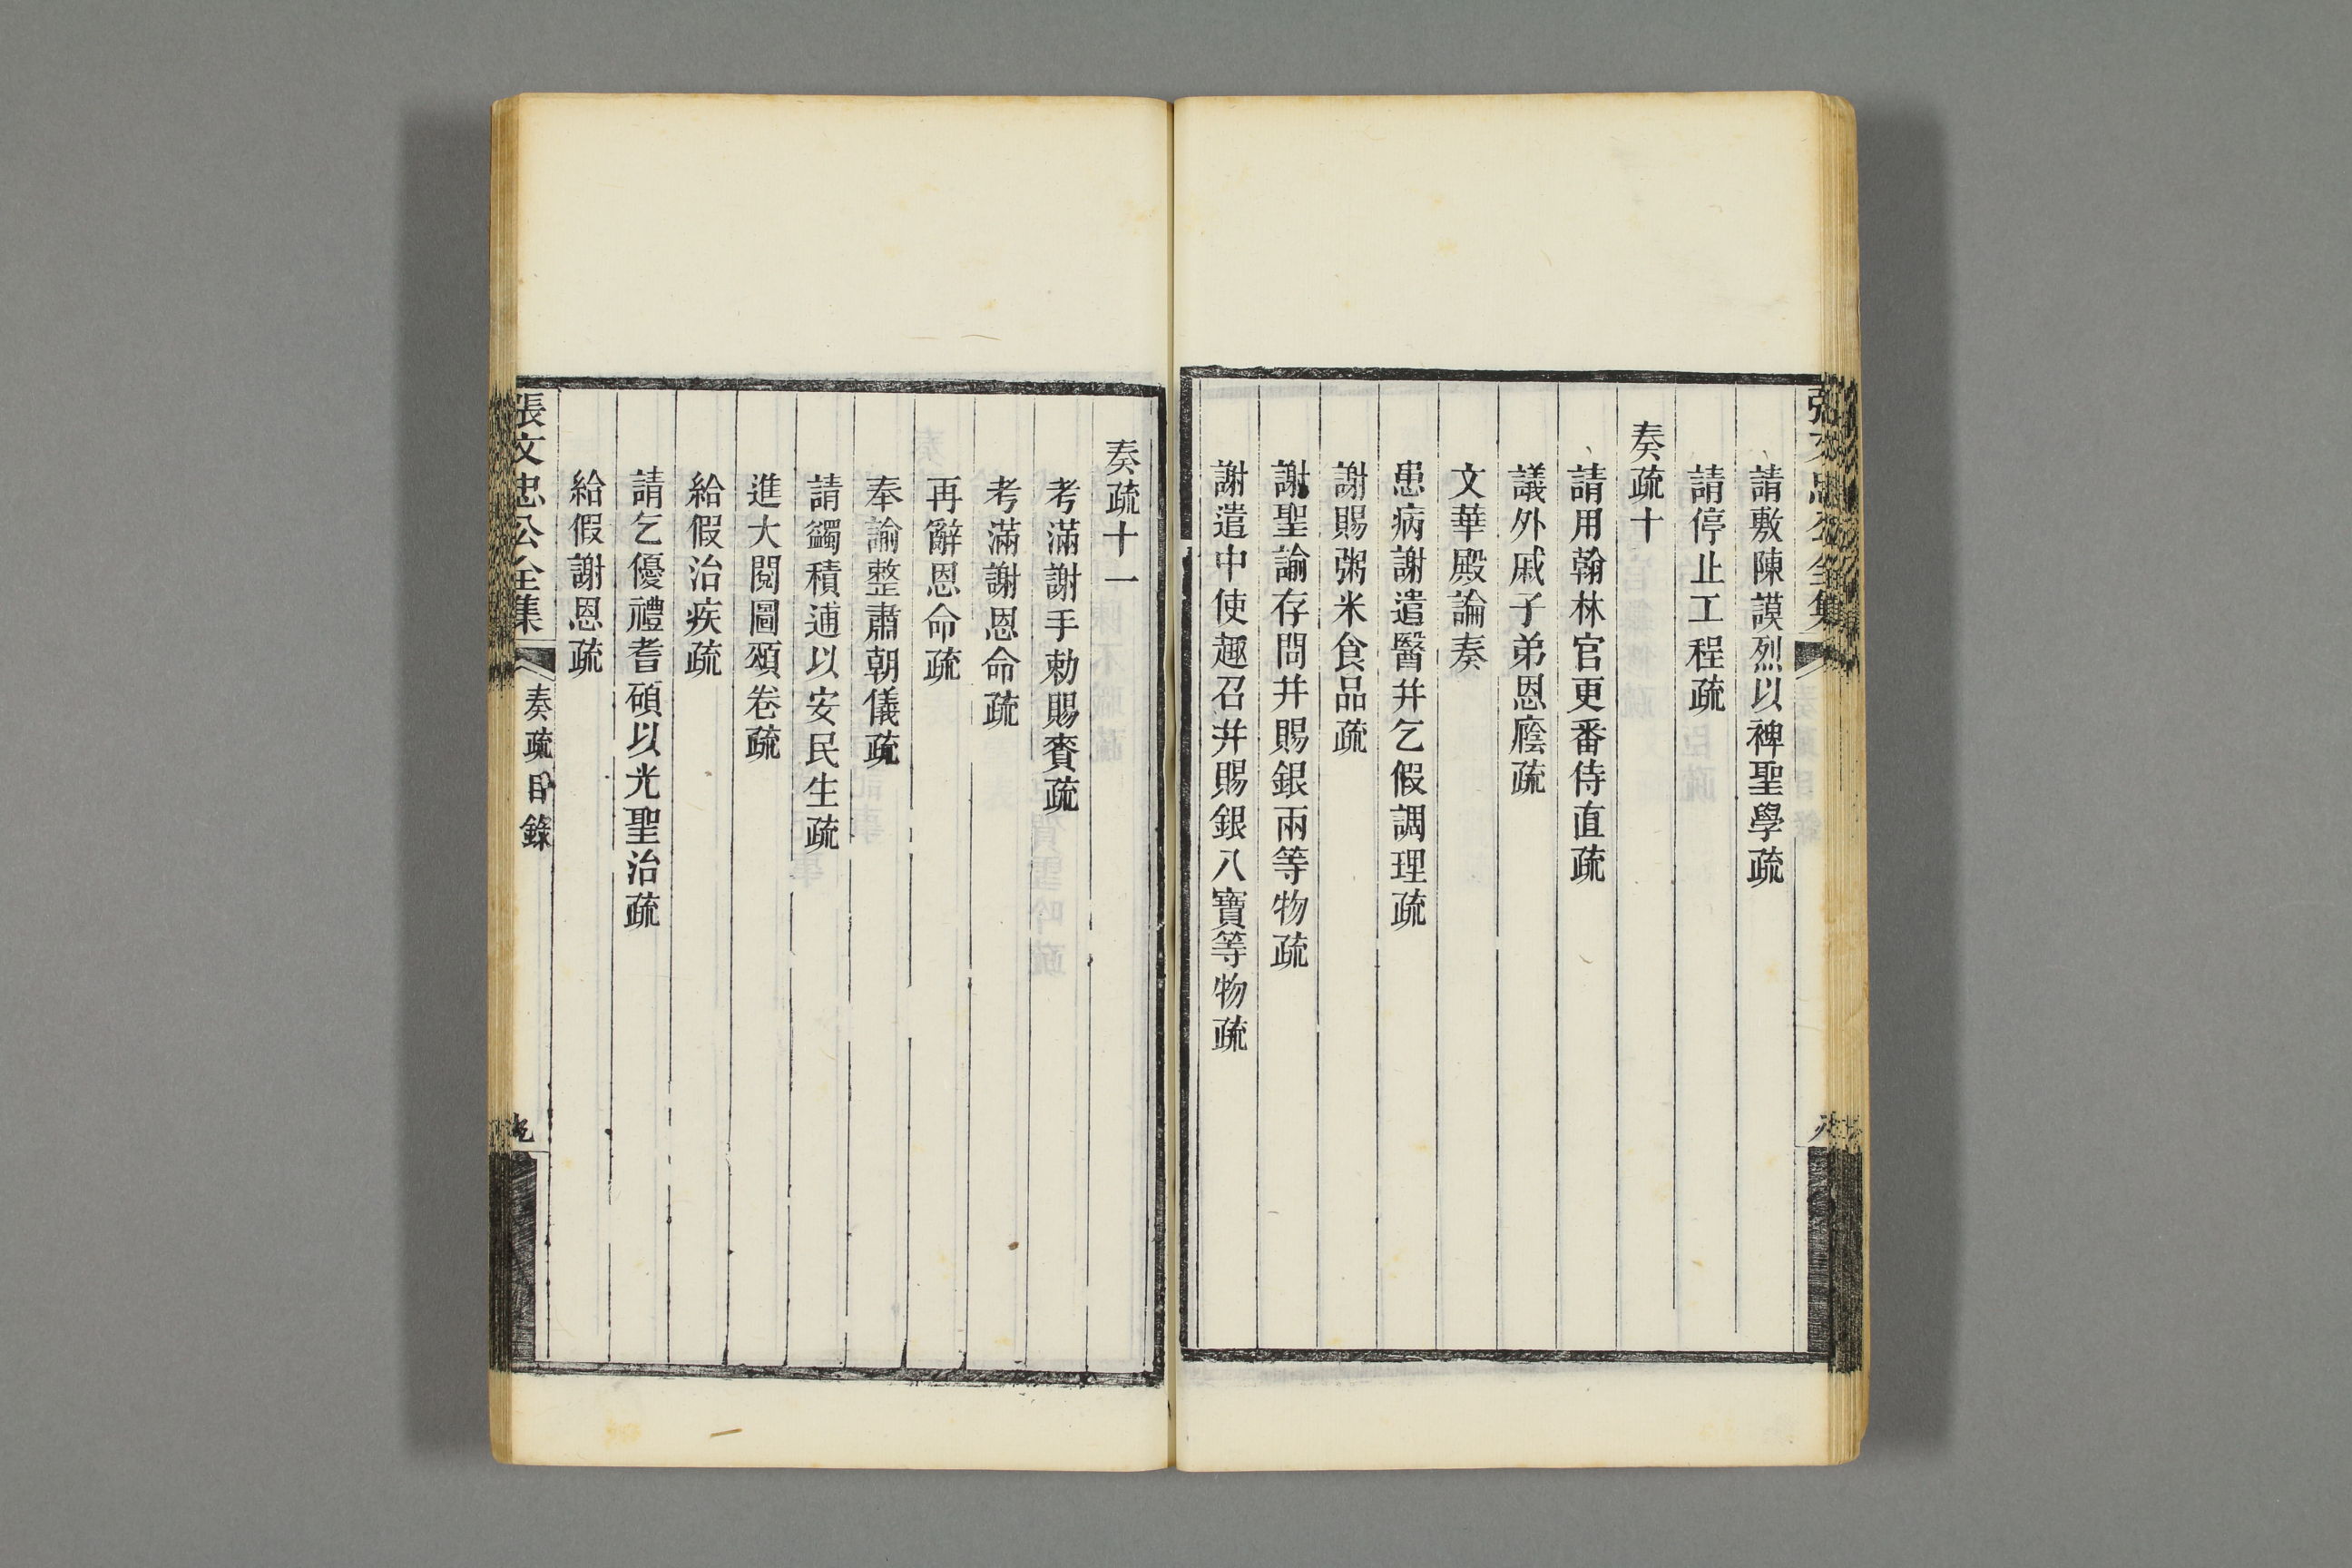 請敷陳謨烈以裨聖學疏
請停止工程疏
奏疏十
請用翰林官更番侍直疏
議外戚子弟恩廕疏
文華殿論奏
患病謝遣醫并乞假調理疏
謝賜粥米食品疏
謝聖諭存問并賜銀兩等物疏
謝遣中使趣召并賜銀八寶等物疏
奏疏十一
考滿謝手勅賜賚疏
考滿謝恩命疏
再辭恩命疏
奉諭整肅朝儀疏
請蠲積逋以安民生疏
進大閱圖頌卷疏
給假治疾疏
請乞優禮耆碩以光聖治疏
給假謝恩疏
張文忠公全集
奏疏目錄